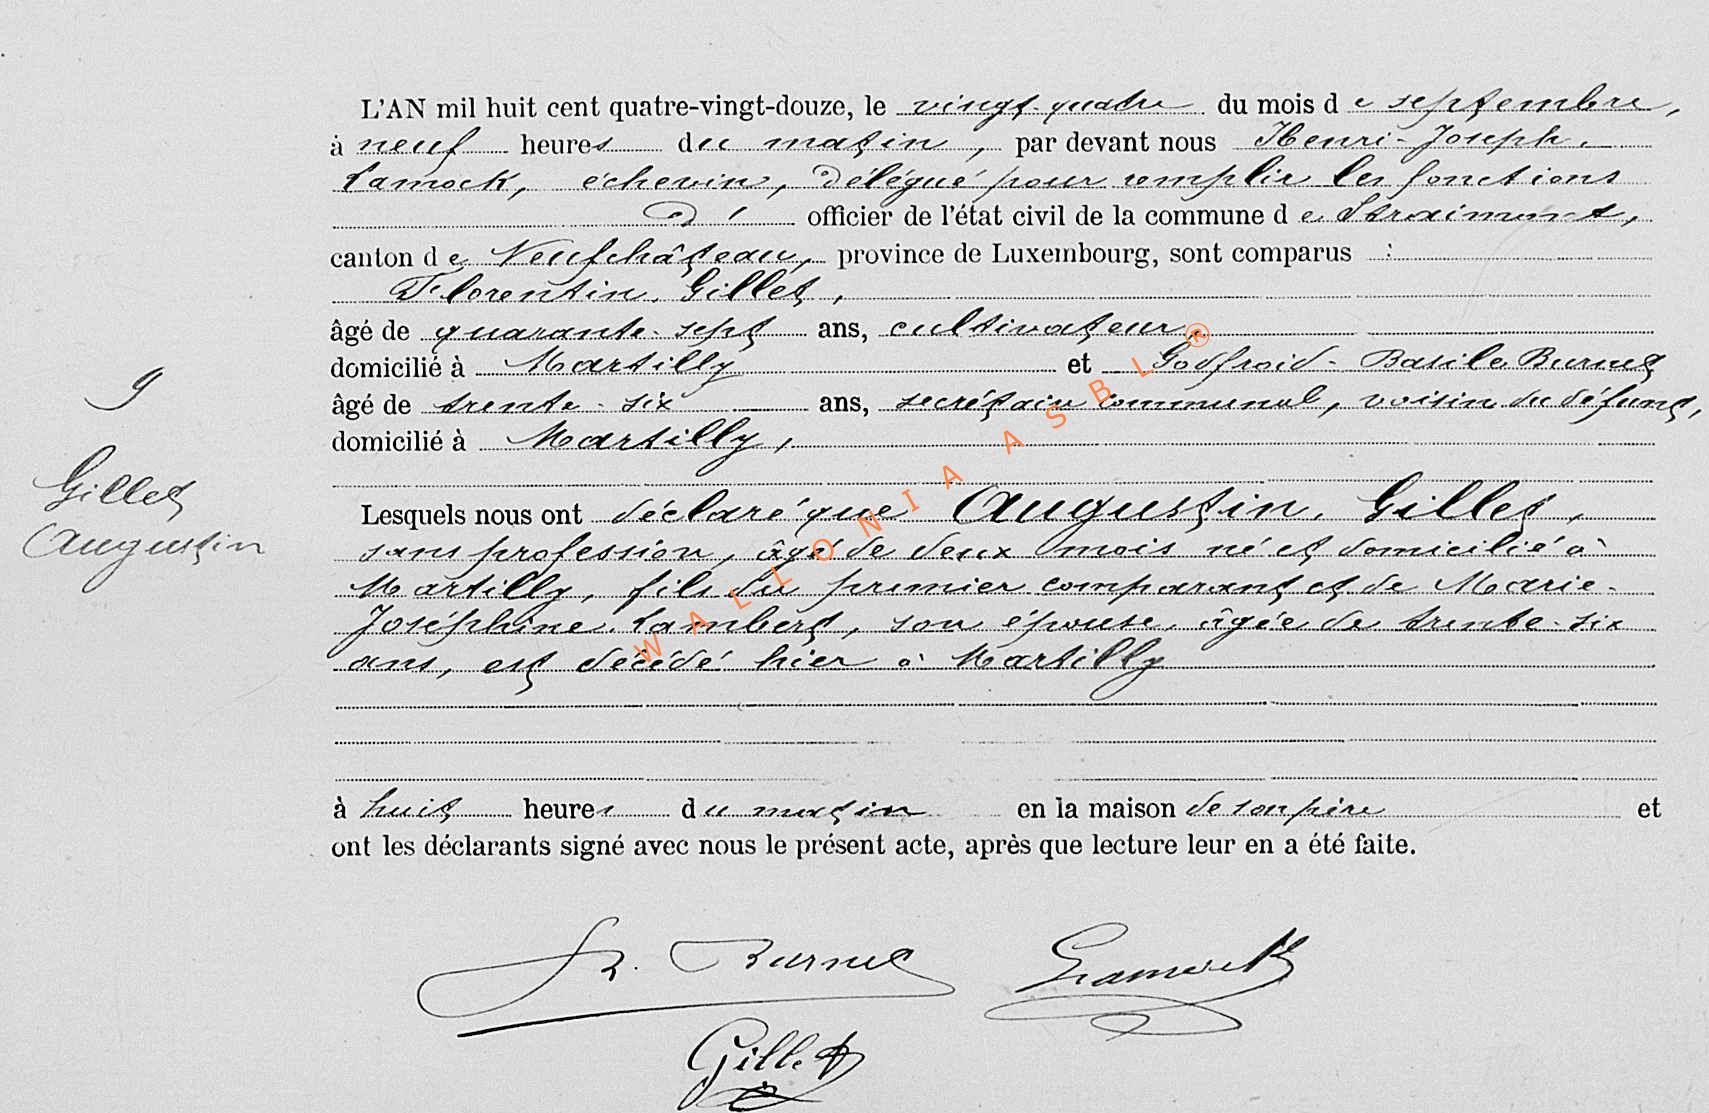 L'AN mil huit cent quatre-vingt-douze, le vingt-quatre du mois de septembre,
à neuf heures du matin, par devant nous Henri-Joseph
Lamock, échevin, délégué pour remplir les fonctions
d' officier de l'état civil de la commune de Straimont,
canton de Neufchâteau, province de Luxembourg, sont comparus :
Florentin Gillet,
âgé de quarante-sept ans, cultivateur,
domicilié à Martilly et Godfroid-Basile Burnet
âgé de trente-six ans, secrétaire communal, voisin du défunt,
domicilié à Martilly,
9
Gillet
Augustin
Lesquels nous ont déclaré que Augustin Gillet,
sans profession, âgé de deux mois né et domicilié à
Martilly, fils du premier comparant et de Marie-
Joséphine Lambert, son épouse, âgée de trente-six
ans, est décédé hier à Martilly
à huit heures du matin en la maison de son père et
ont les déclarants signé avec nous le présent acte, après que lecture leur en a été faite.
Burnet Lamock
Gillet
WALLONIA ASBL ®